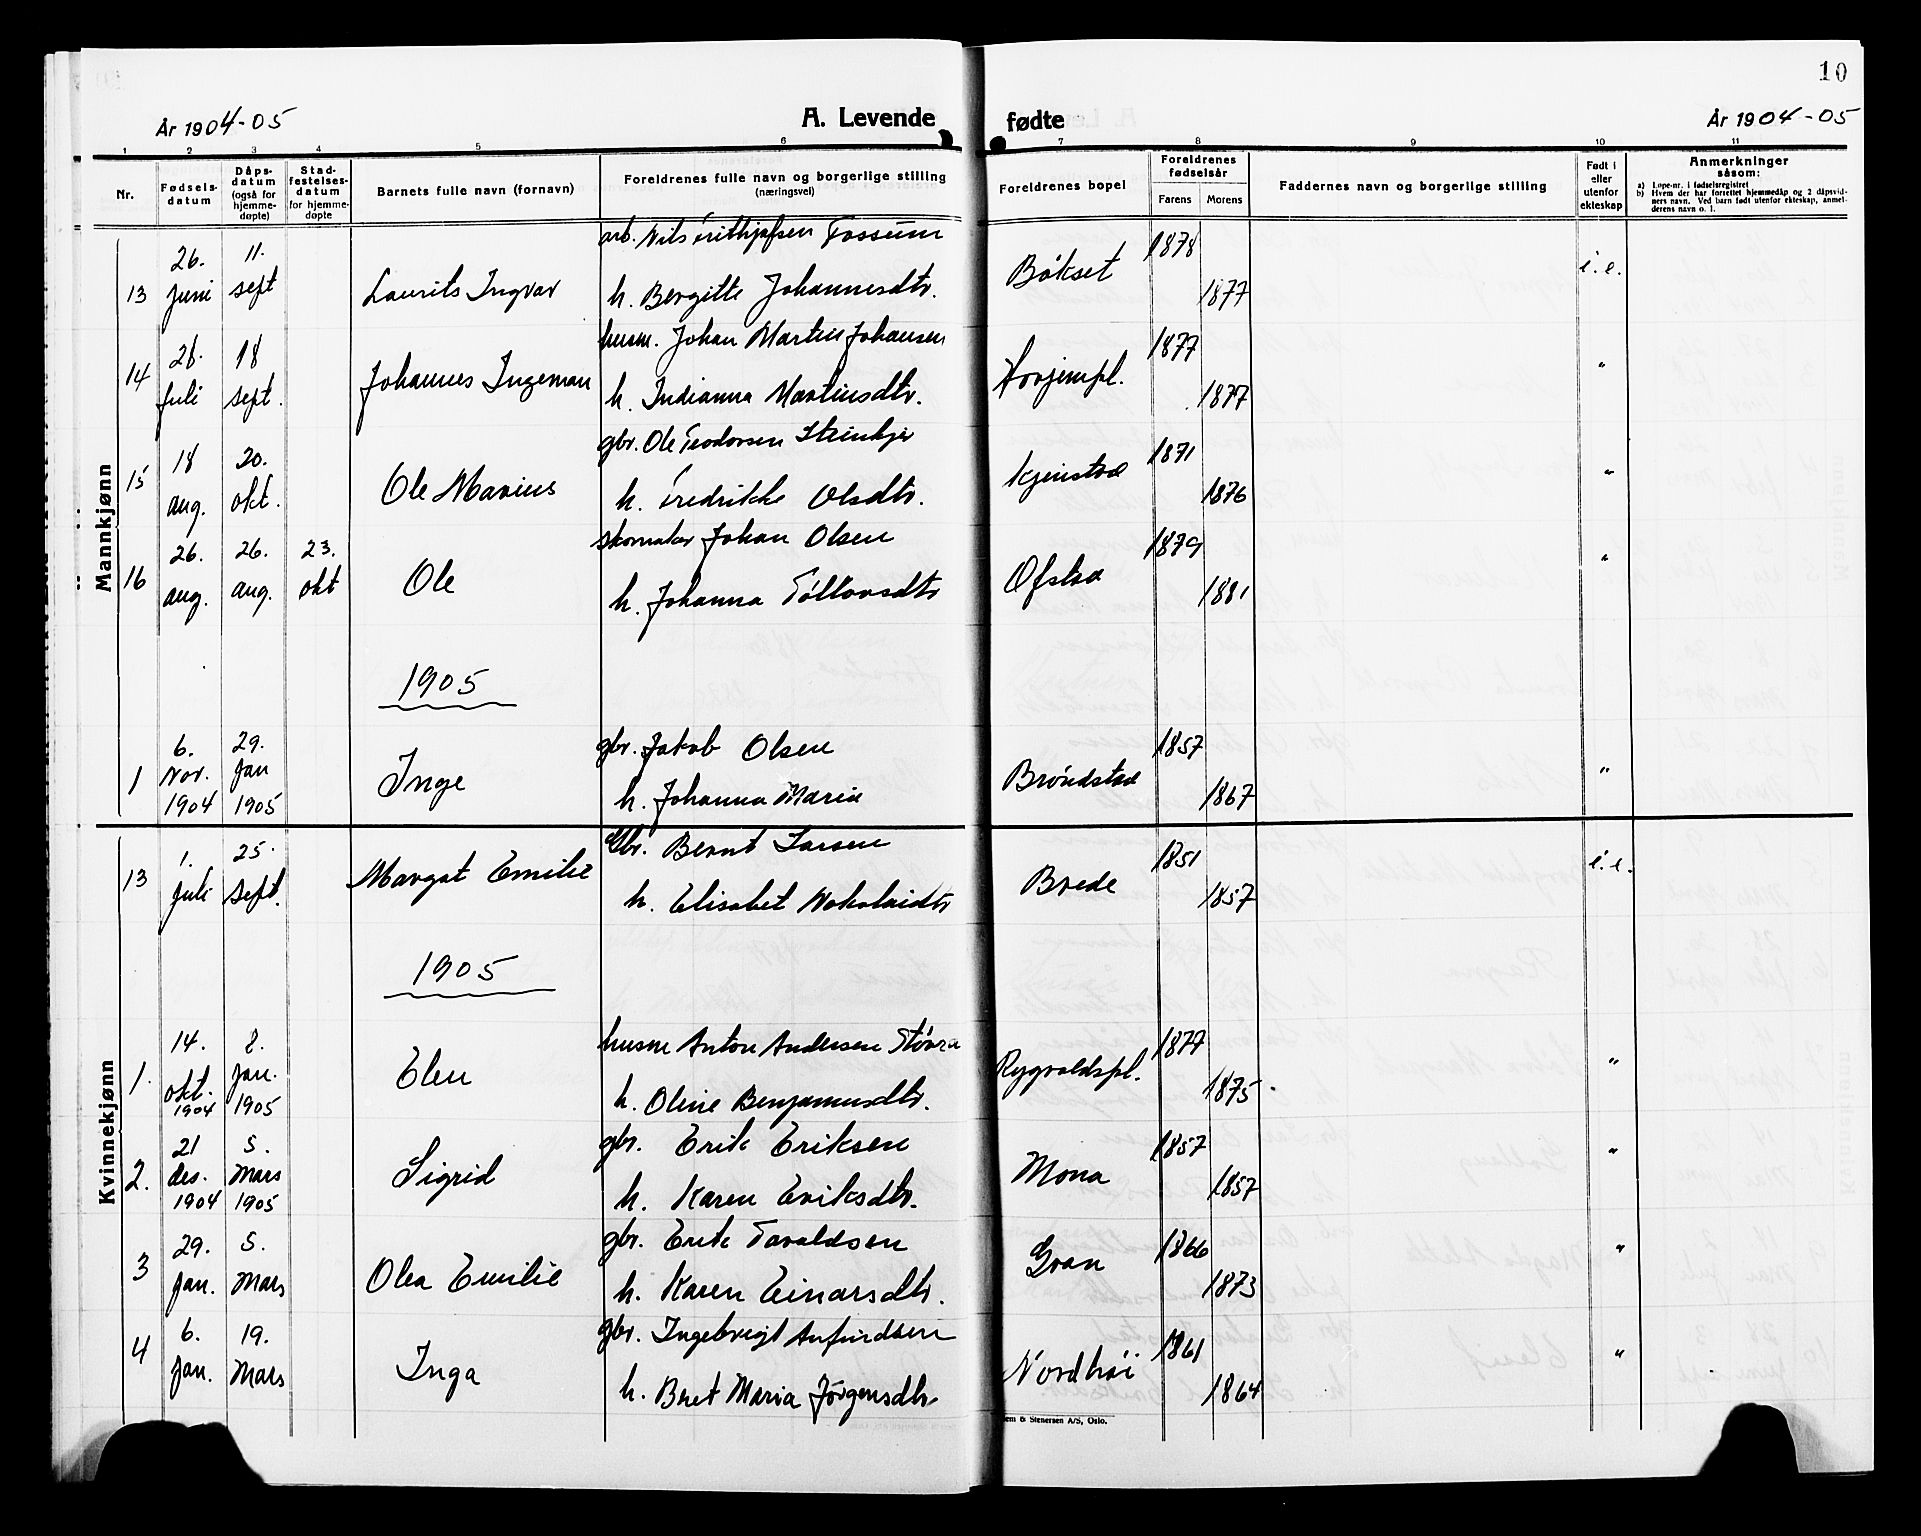 10
År 1904-05
A. Levende fødte
År 1904-05
1 2 3 4 5 6 7 8 9 10 11
Nr.
Fødsels-
datum
Dåps-
datum
(også for
hjemme-
døpte)
Stad-
festelses-
datum
for hjemme-
døpte
Barnets fulle navn (fornavn)
Foreldrenes fulle navn og borgerlige stilling
(næringsvei)
Foreldrenes bopel
Foreldrenes
fødselsår
Farens Morens
Faddernes navn og borgerlige stilling
Født i
eller
utenfor
ekteskap
Anmerkninger
såsom:
a) Løpe-nr. i fødselsregistret
b) Hvem der har forrettet hjemmedåp og 2 dåpsvid-
ners navn. Ved barn født utenfor ekteskap, anmel-
derens navn o. l.
Mannkjønn
13 26. Juni 11. sept Laurits Ingvar
arb. Nils Frithjofsen Fossum
h. Bergitte Johannesdtr.
Bökset 1878 1877 i.e.
14 28. Juli 18 sept. Johannes Ingeman
husm. Johan Martin Johansen
h. Indianna Martinsdtr.
1877 1877 "
15 18 aug. 20. okt. Ole Marius
gbr. Ole Teodorsen Steinkjer
h. Fredrikke Olsdtr.
1871 1876 "
16 26. aug. 26. aug. 23. okt Ole
skomaker Johan Olsen
h. Johanna
Ofstad 1879 1881 "
1905
1 6. Nov. 1904 29. Jan 1905 Inge
gbr. Jakob Olsen
h. Johanna Maria
Bröndstad 1857 1867 "
Kvinnekjønn
13 1. Juli 25. sept. Margot Emilie
Gbr. Bernt Larsen
h. Elisabet
Brede 1851 1857 i.e.
1905
1. 14. okt. 1904 8. Jan. 1905 Elen
husm Anton Andersen
h. Oline Benjaminsdtr.
Rygvoldspl. 1877 1875 "
2. 21 des. 1904 5. Mars 1905 Sigrid
gbr. Erik Eriksen
h. Karen Eriksdtr.
Mona 1857 1857 "
3 29. Jan. 5. Mars Olea Emilie
gbr. Erik Tavaldsen
h. Karen Einarsdtr.
Gran 1866 1873 "
4 6. Jan. 19. Mars Inga
gbr. Ingebrigt Anfindsen
h. Beret Maria Jörgensdtr.
1861 1864 "
em & Stenersen A/S, Oslo.